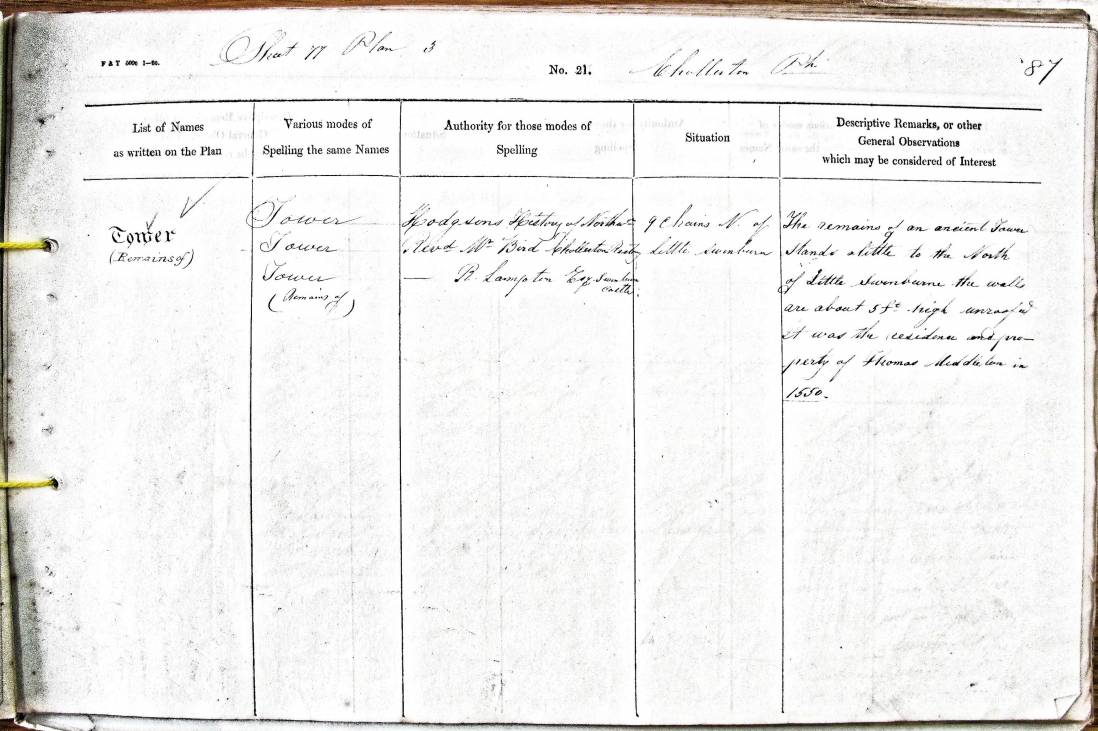 Sheet 77 Plan 3
F & T 5000 1-60.
No. 21.
Chollerton Ph.
87
List of Names
as written on the Plan
Various modes of
Spelling the same Names
Authority for those modes of
Spelling
Situation
Descriptive Remarks, or other
General Observations
which may be considered of Interest
Tower
(Remains of)
Tower
Tower
Tower
(Remains of)
Hodgsons History of
Revd. Mr. Bird Chollerton
— R. Lampton Esq. Swinburn
Castle.
9 Chains N. of
Little Swinburn
The remains of an ancient Tower
Stands a little to the North
of Little Swinburne the walls
are about 5 ft. high unroofed
it was the residence and pro-
perty of Thomas Middleton in
1550.